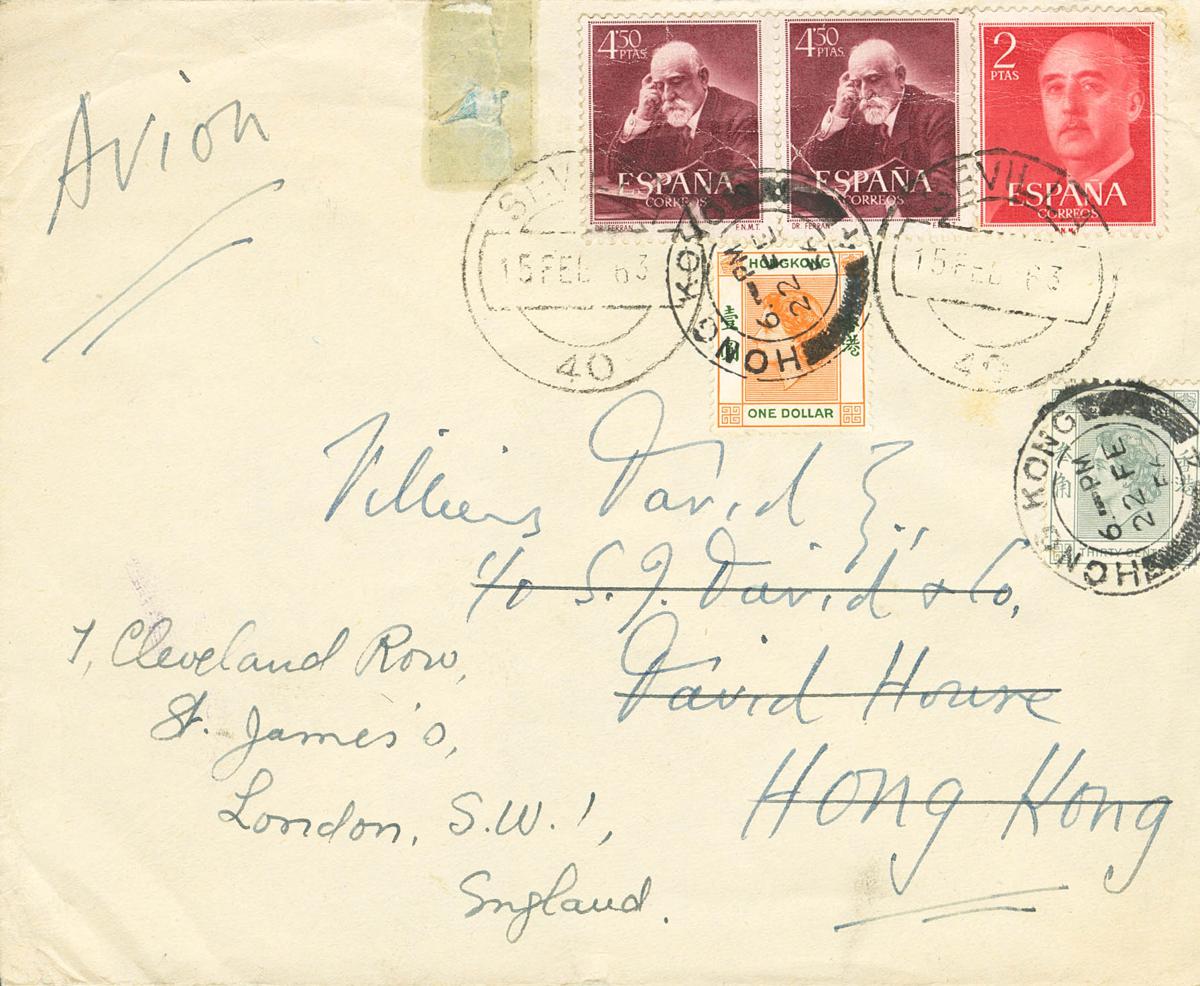 Avion
4'50 PTAS
ESPAÑA
CORREOS
DR. FERRAN F.N.M.T.
4'50 PTAS
ESPAÑA
CORREOS
DR. FERRAN
2 PTAS
ESPAÑA
CORREOS
15 FEB 63
40
15 FEB 63
40
HONG KONG
6 - PM
22 FE
HONGKONG
壹
圓
港
ONE DOLLAR
HONG KONG
6 - PM
22 FE
角
港
THIRTY CENTS
Villiers David E.,
c/o S. J. David & Co,
David House
Hong Kong
7, Cleveland Row,
St. James's,
London, S.W. 1,
England.